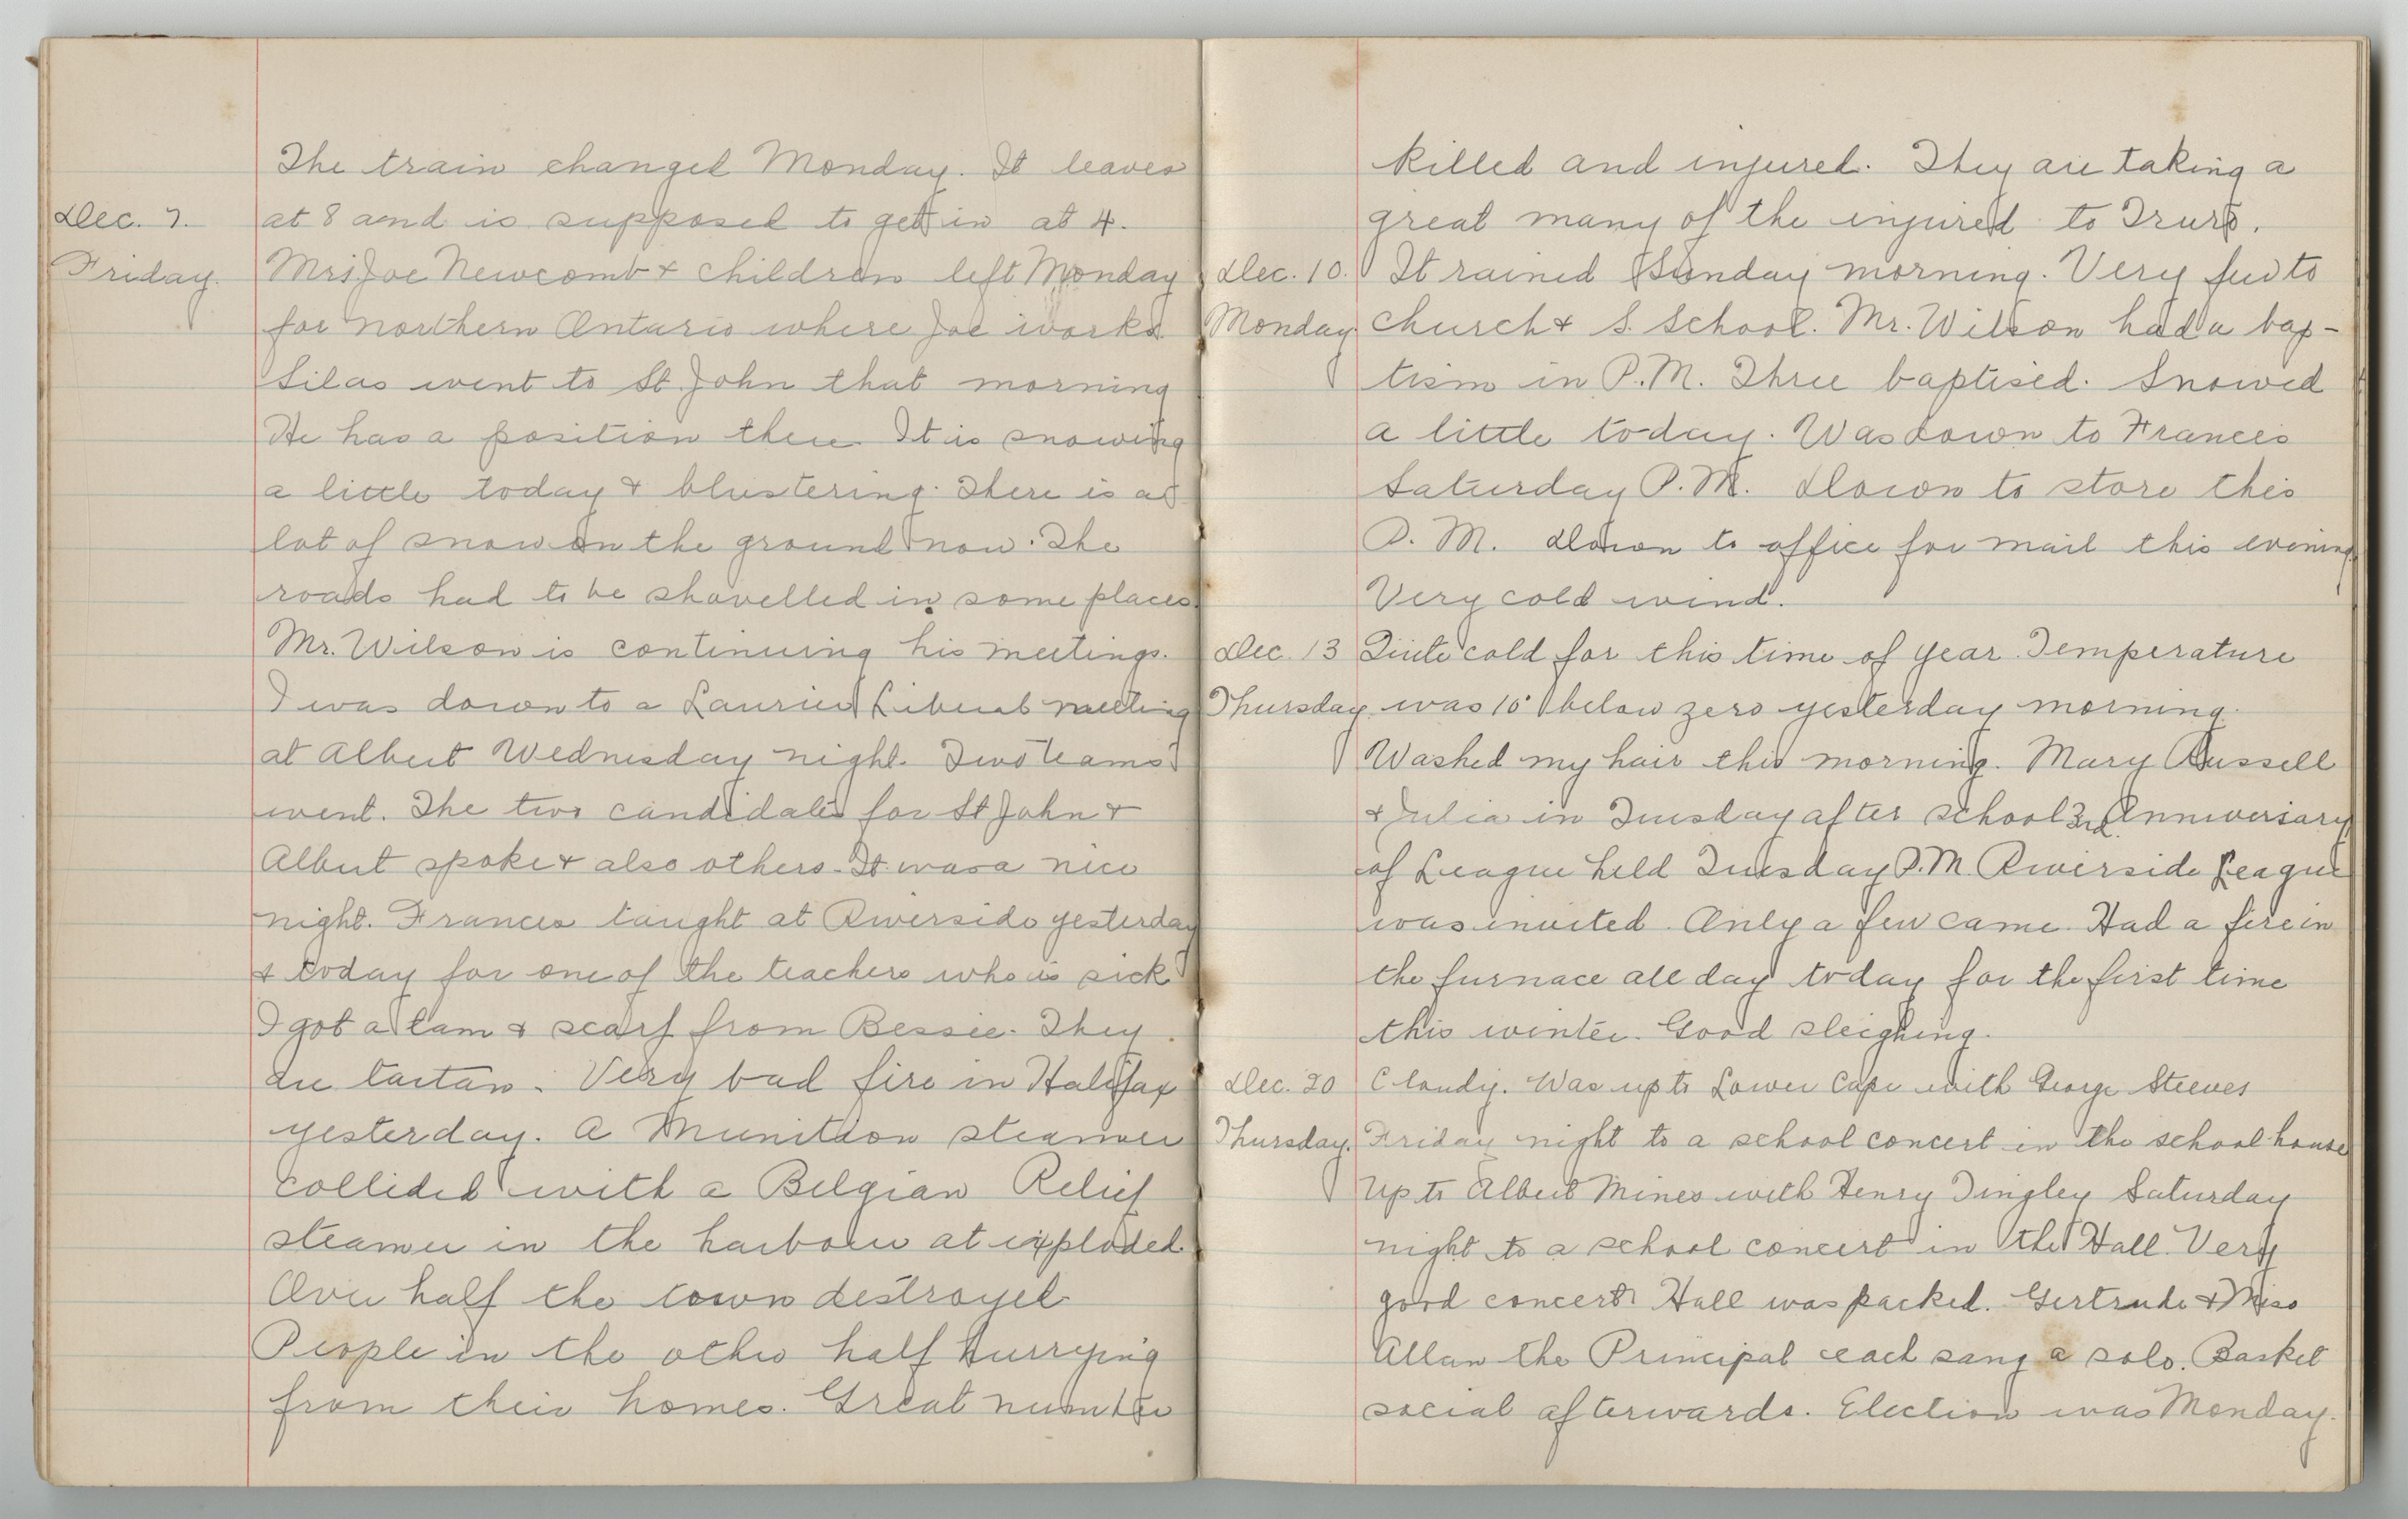 The train changed Monday. It leaves
Dec. 7. at 8 and is supposed to get in at 4.
Friday. Mrs Joe Newcomb & children left Monday
for northern Ontario where Joe works.
Silas went to St. John that morning
He has a position there. It is snowing
a little today & blustering. There is a
lot of snow on the ground now. The
roads had to be shovelled in some places.
Mr. Wilson is continuing his meetings.
I was down to a Laurier Liberal meeting
at Albert Wednesday night. Two teams
went. The two candidates for St John &
Albert spoke & also others. It was a nice
night. Frances taught at Riverside yesterday
& today for one of the teachers who is sick
I got a tam & scarf from Bessie. They
are tartan. Very bad fire in Halifax
yesterday. A Munition steamer
collided with a Belgian Relief
steamer in the harbour at exploded.
Over half the town destroyed
People in the other half hurrying
from their homes. Great number
killed and injured. They are taking a
great many of the injured to Truro.
Dec. 10. It rained Sunday morning. Very few to
Monday. church & S. School. Mr. Wilson had a bap-
tism in P.M. Three baptised. Snowed
a little today. Was down to Frances
Saturday P.M. Down to store this
P.M. Down to office for mail this evening
Very cold wind.
Dec. 13 Quite cold for this time of year. Temperature
Thursday was 10° below zero yesterday morning.
Washed my hair this morning. Mary Russell
& Julia in Tuesday after school 3rd Anniversary
of League held Tuesday P.M. Riverside League
was invited. Only a few came. Had a fire in
the furnace all day today for the first time
this winter. Good sleighing.
Dec. 20 Cloudy. Was up to Lower Cape with George Steeves
Thursday. Friday night to a school concert in the school house
Up to Albert Mines with Henry Tingley Saturday
night to a school concert in the Hall. Very
good concert. Hall was packed. Gertrude & Miss
Allan the Principal each sang a solo. Basket
social afterwards. Election was Monday.